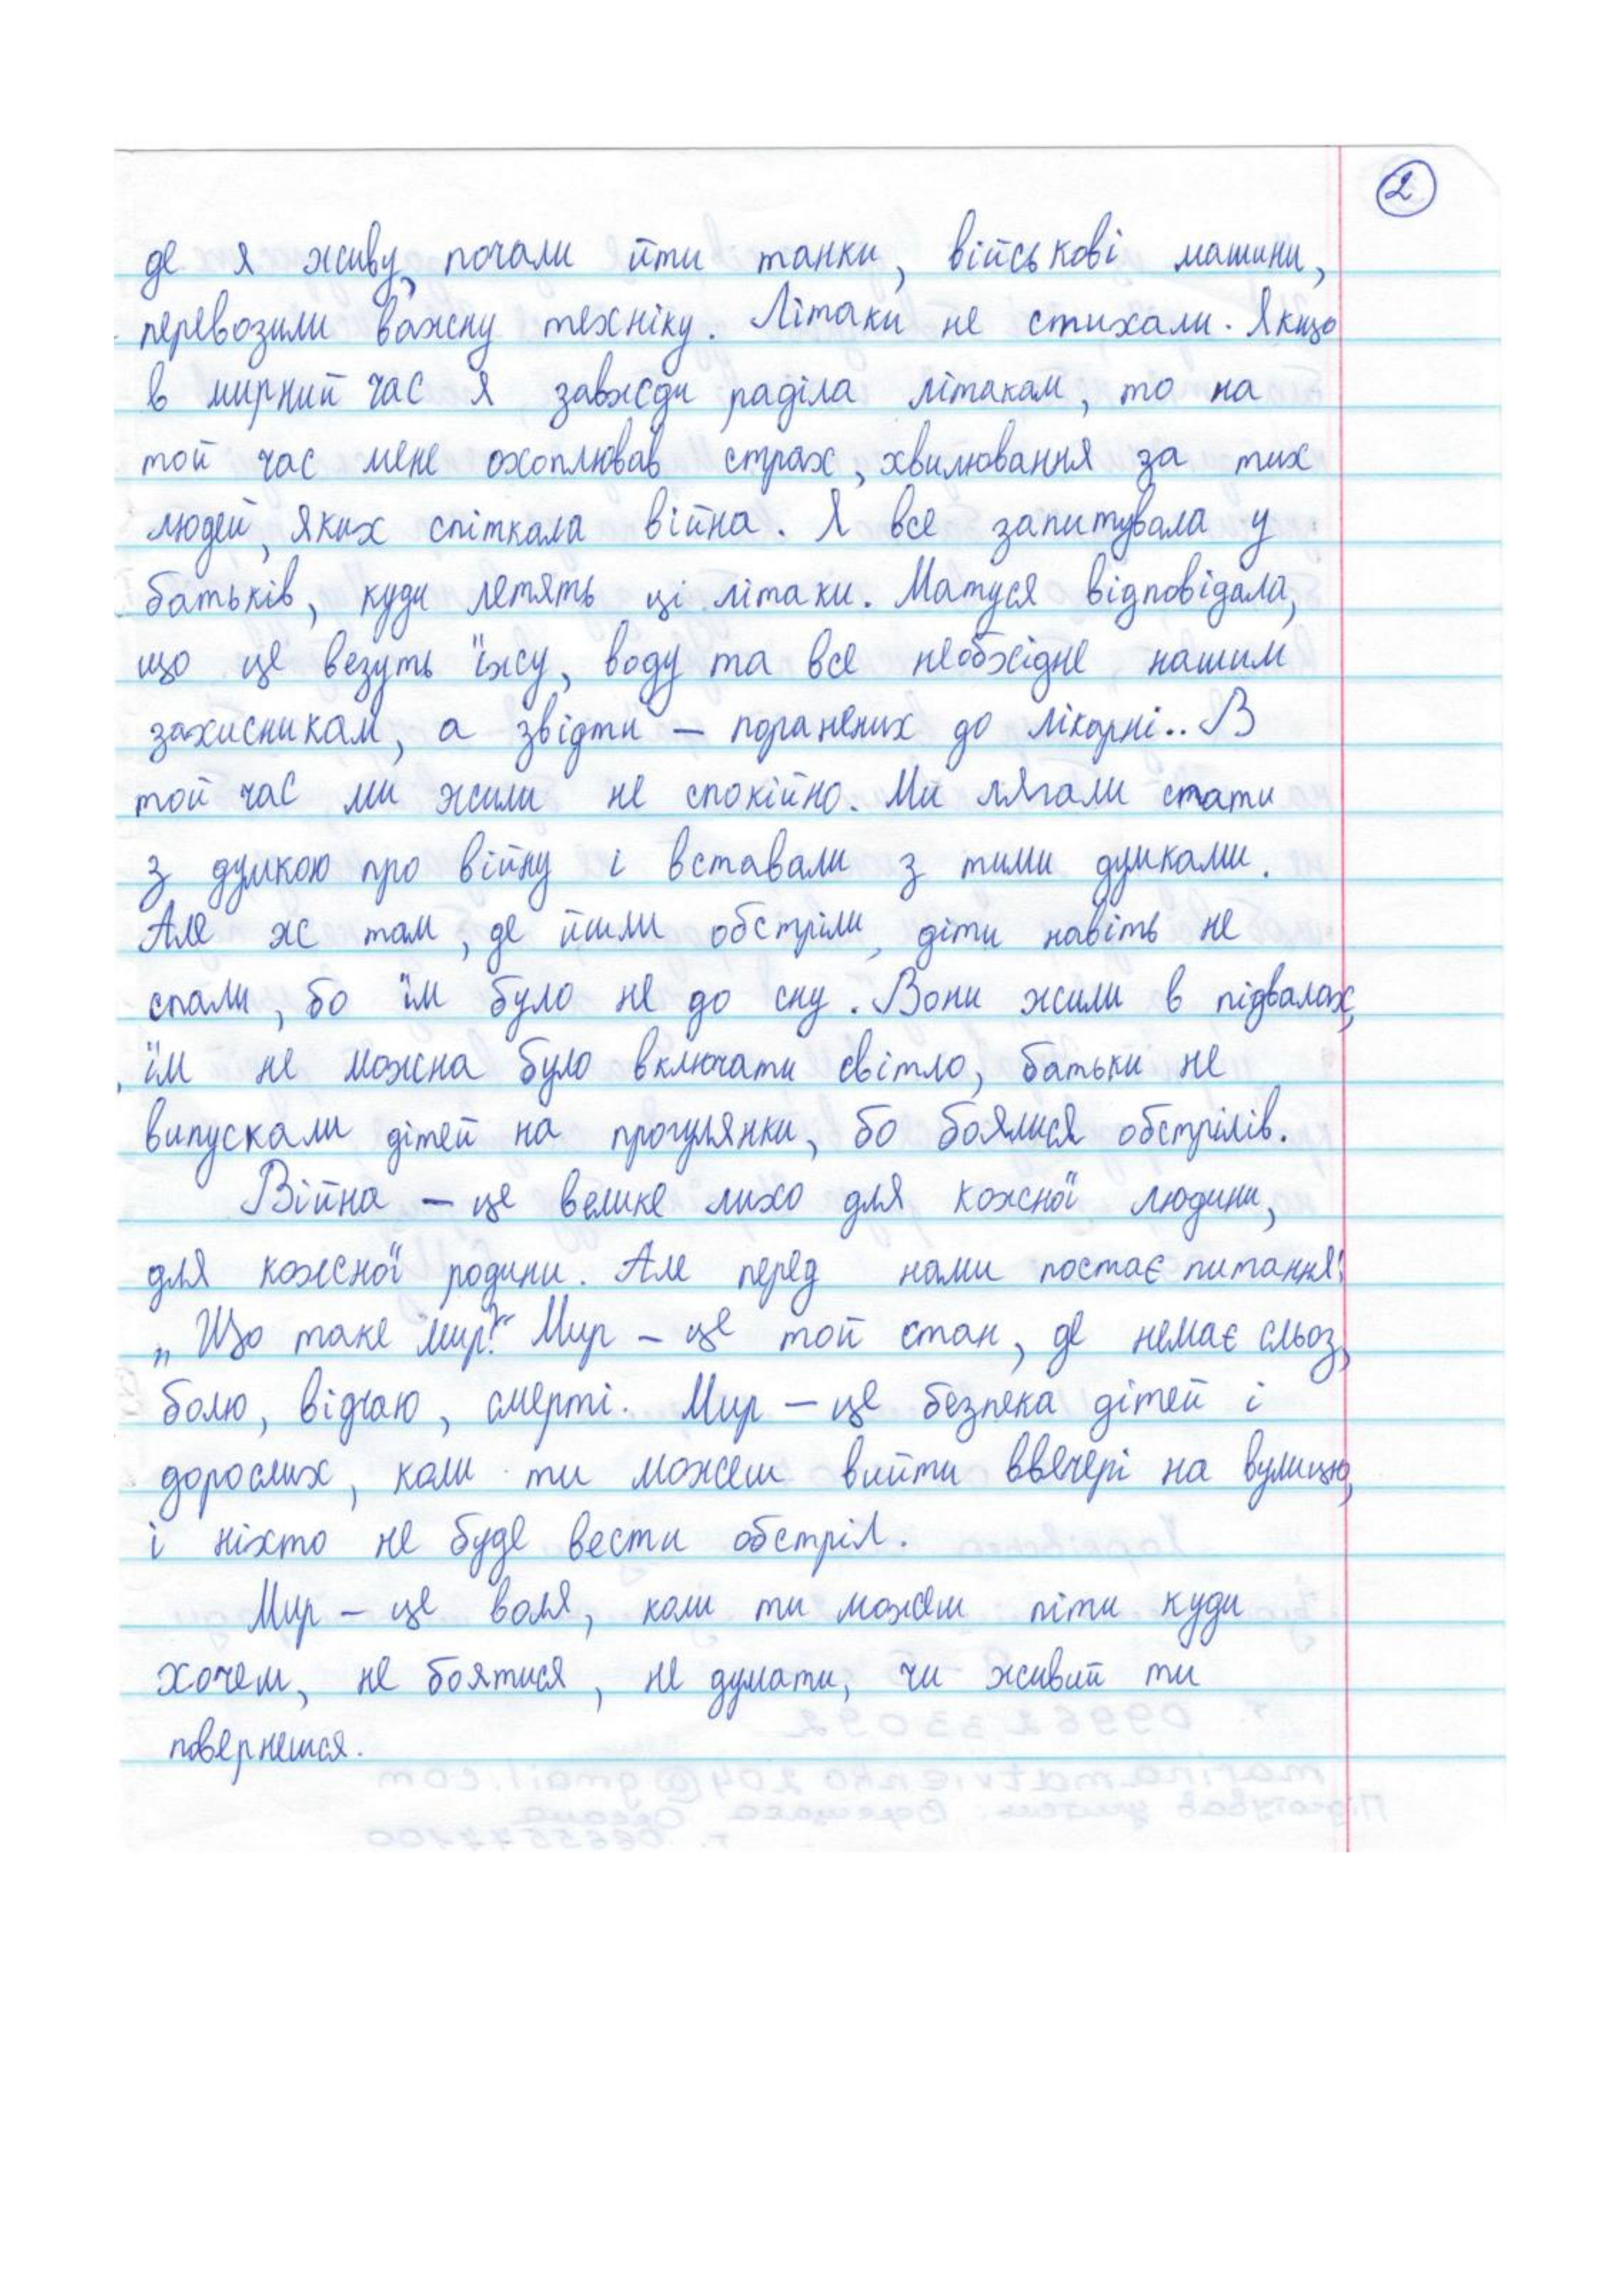 2
де я живу, почали йти танки, військові машини,
перевозили важну техніку. Літаки не стихали. Якщо
в мирний час я завжди раділа літакам, то на
той час мене охоплював страх, хвилювання за тих
людей, яких спіткала війна. Я все запитувала у
батьків, куди летять ці літаки. Матуся відповідала,
що це везуть їжу, воду та все необхідне нашим
захисникам, а звідти – поранених до лікарні.. В
той час ми жили не спокійно. Ми лягали спати
з думкою про війну і вставали з тими думками.
Але ж там, де йшли обстріли, діти навіть не
спали, бо їм було не до сну. Вони жили в підвалах,
їм не можна було включати світло, батьки не
випускали дітей на прогулянки, бо боялися обстрілів.
Війна – це велике лихо для кожної людини,
для кожної родини. Але перед нами постає питання:
„Що таке мир?“ Мир – це той стан, де немає сльоз,
болю, відчаю, смерті. Мир – це безпека дітей і
дорослих, коли ти можеш вийти ввечері на вулицю,
і ніхто не буде вести обстріл.
Мир – це воля, коли ти можеш піти куди
хочеш, не боятися, не думати, чи живий ти
повернешся.